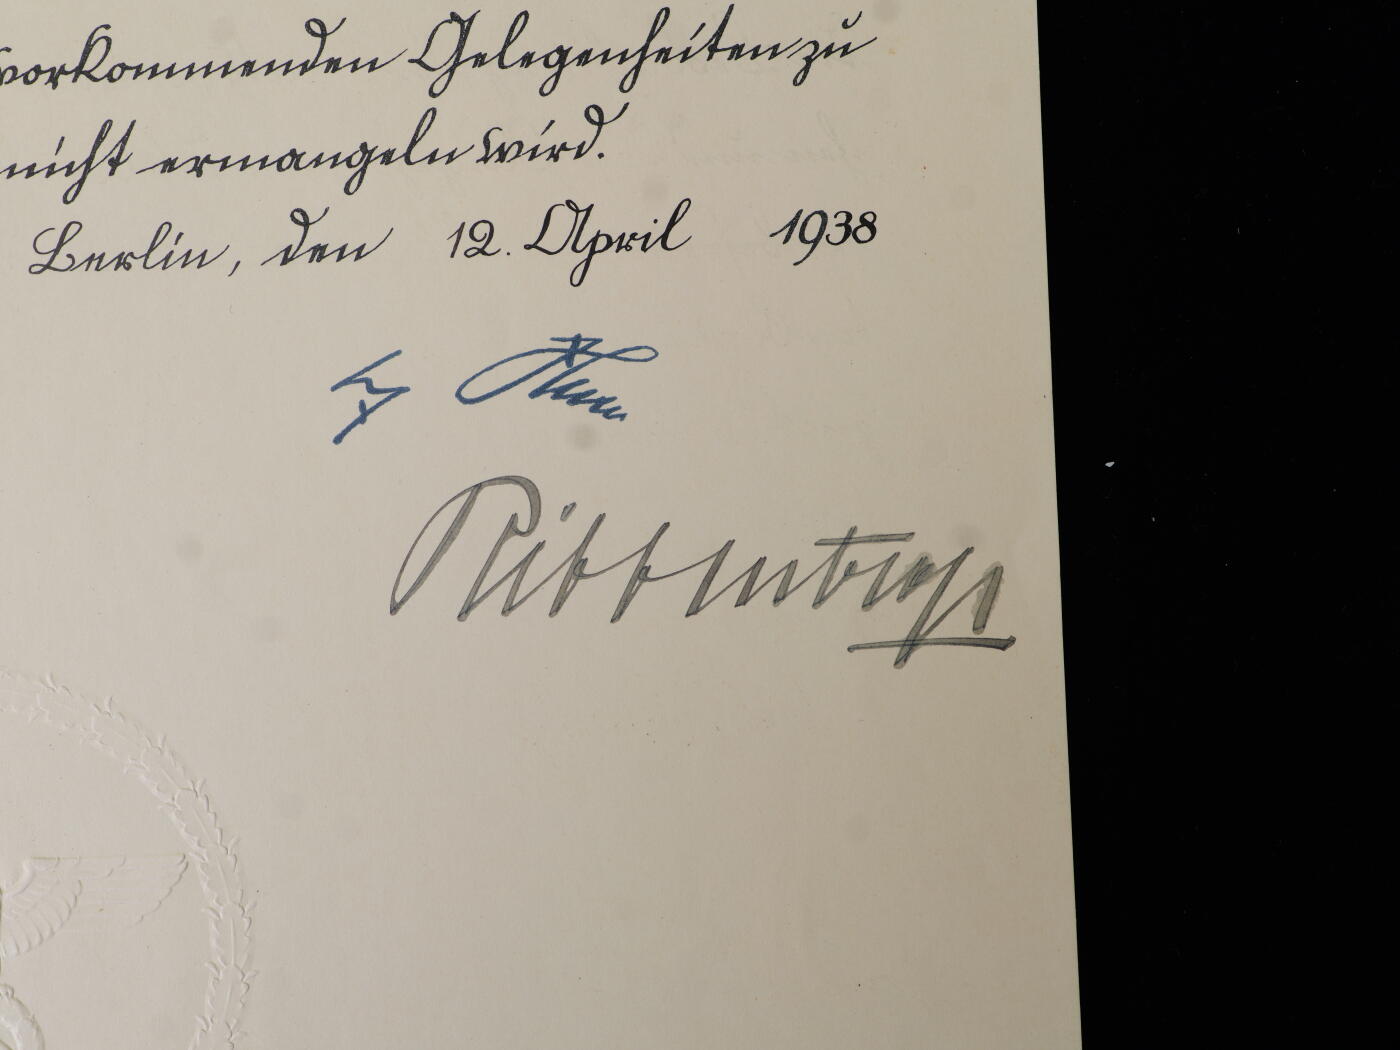 vorkommenden Gelegenheiten zu
nicht ermangeln wird.
Berlin, den 12. April 1938
Ribbentrop